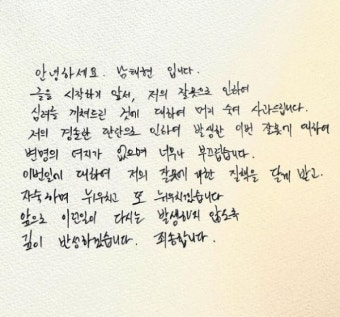 안녕하세요. 남태현 입니다.
글을 시작하기 앞서, 저의 잘못으로 인하여
심려를 끼쳐드린 것에 대하여 머리 숙여 사과드립니다.
저의 경솔한 판단으로 인하여 발생한 이번 잘못에 대하여
변명의 여지가 없으며 너무나 부끄럽습니다.
이번일에 대하여 저의 잘못에 대한 질책을 달게 받고.
자숙하며 뉘우치고 또 뉘우치겠습니다
앞으로 이런일이 다시는 발생하지 않도록
깊이 반성하겠습니다. 죄송합니다.